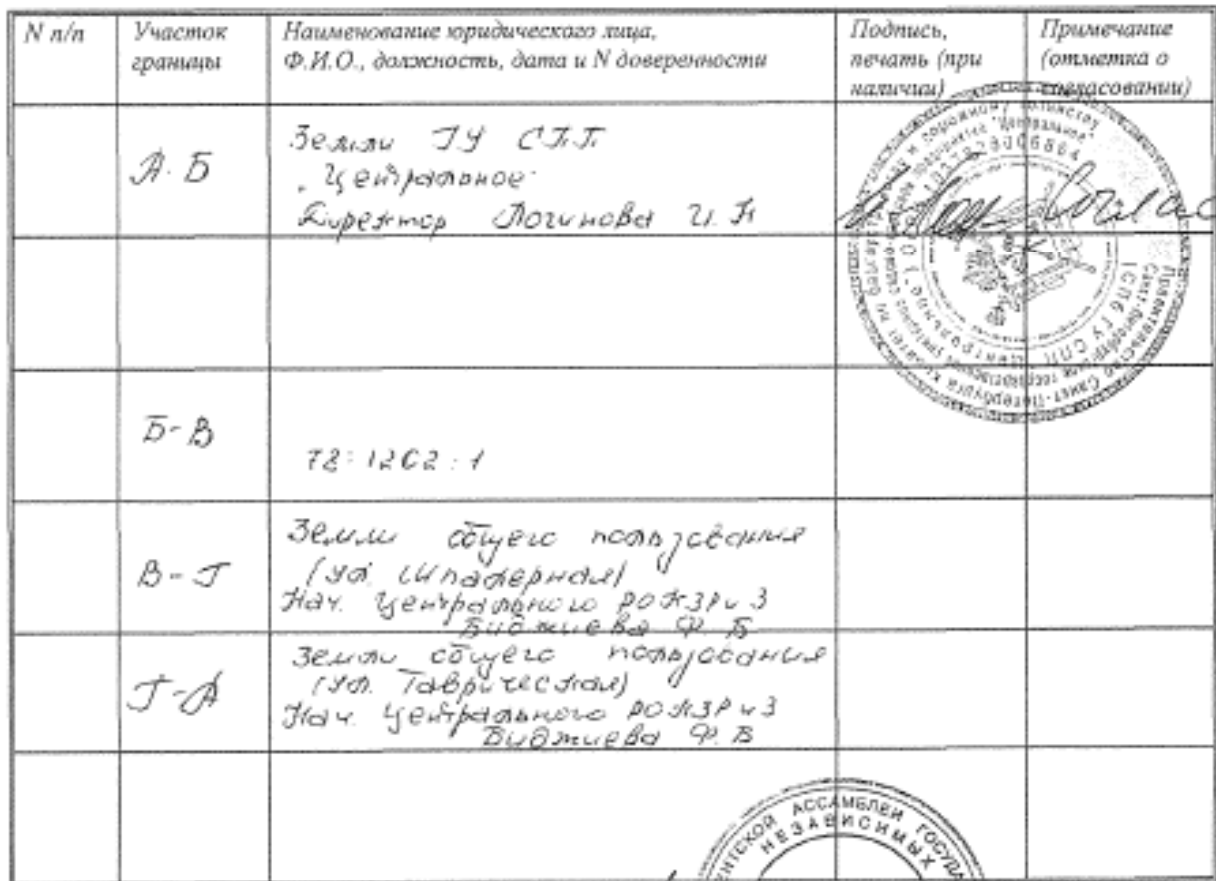 N п/п
Участок
границы
Наименование юридического лица,
Ф.И.О., должность, дата и N доверенности
Подпись,
печать (при
наличии)
Примечание
(отметка о
согласовании)
А-Б
Земли ГУ СПП
"Центральное"
Директор Логинова И.К
Соглас
Правительство Санкт-Петербурга
СПб ГУ СПП "Центральное"
Б-В
78:1202:1
В-Г
Земли общего пользования
(ул. Шпалерная)
Нач. Центрального РОКЗР и З
Биджиева Ф.Б
Г-А
Земли общего пользования
(ул. Таврическая)
Нач. Центрального РОКЗР и З
Биджиева Ф.Б
АССАМБЛЕИ ГОСУДА
НЕЗАВИСИМЫХ